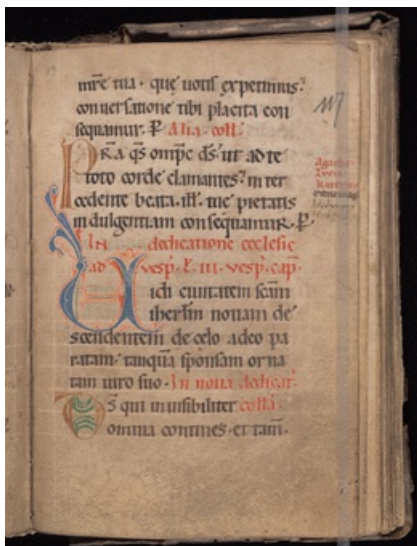 mr̄e tua. que uotis expetimus?
conuersatione tibi placita con
sequamur. P Alia. coll.
PRA q̄s om̄pe d̄s ut ad te
toto corde clamantes? inter
cedente beata. ill. tue pietatis
indulgentiam consequamur. P.
IN dedicatione ecclesie
ad vesp̄. ł. III. vesp̄. cap̄.
Uidi ciuitatem sc̄am
iherl̄m nouam de
scendentem de celo a deo pa
ratam. tanquā sponsam orna
tam uiro suo. In noua dedicat̄.
DS̄ qui inuisibiliter collā.
omnia contines. et tam̄.